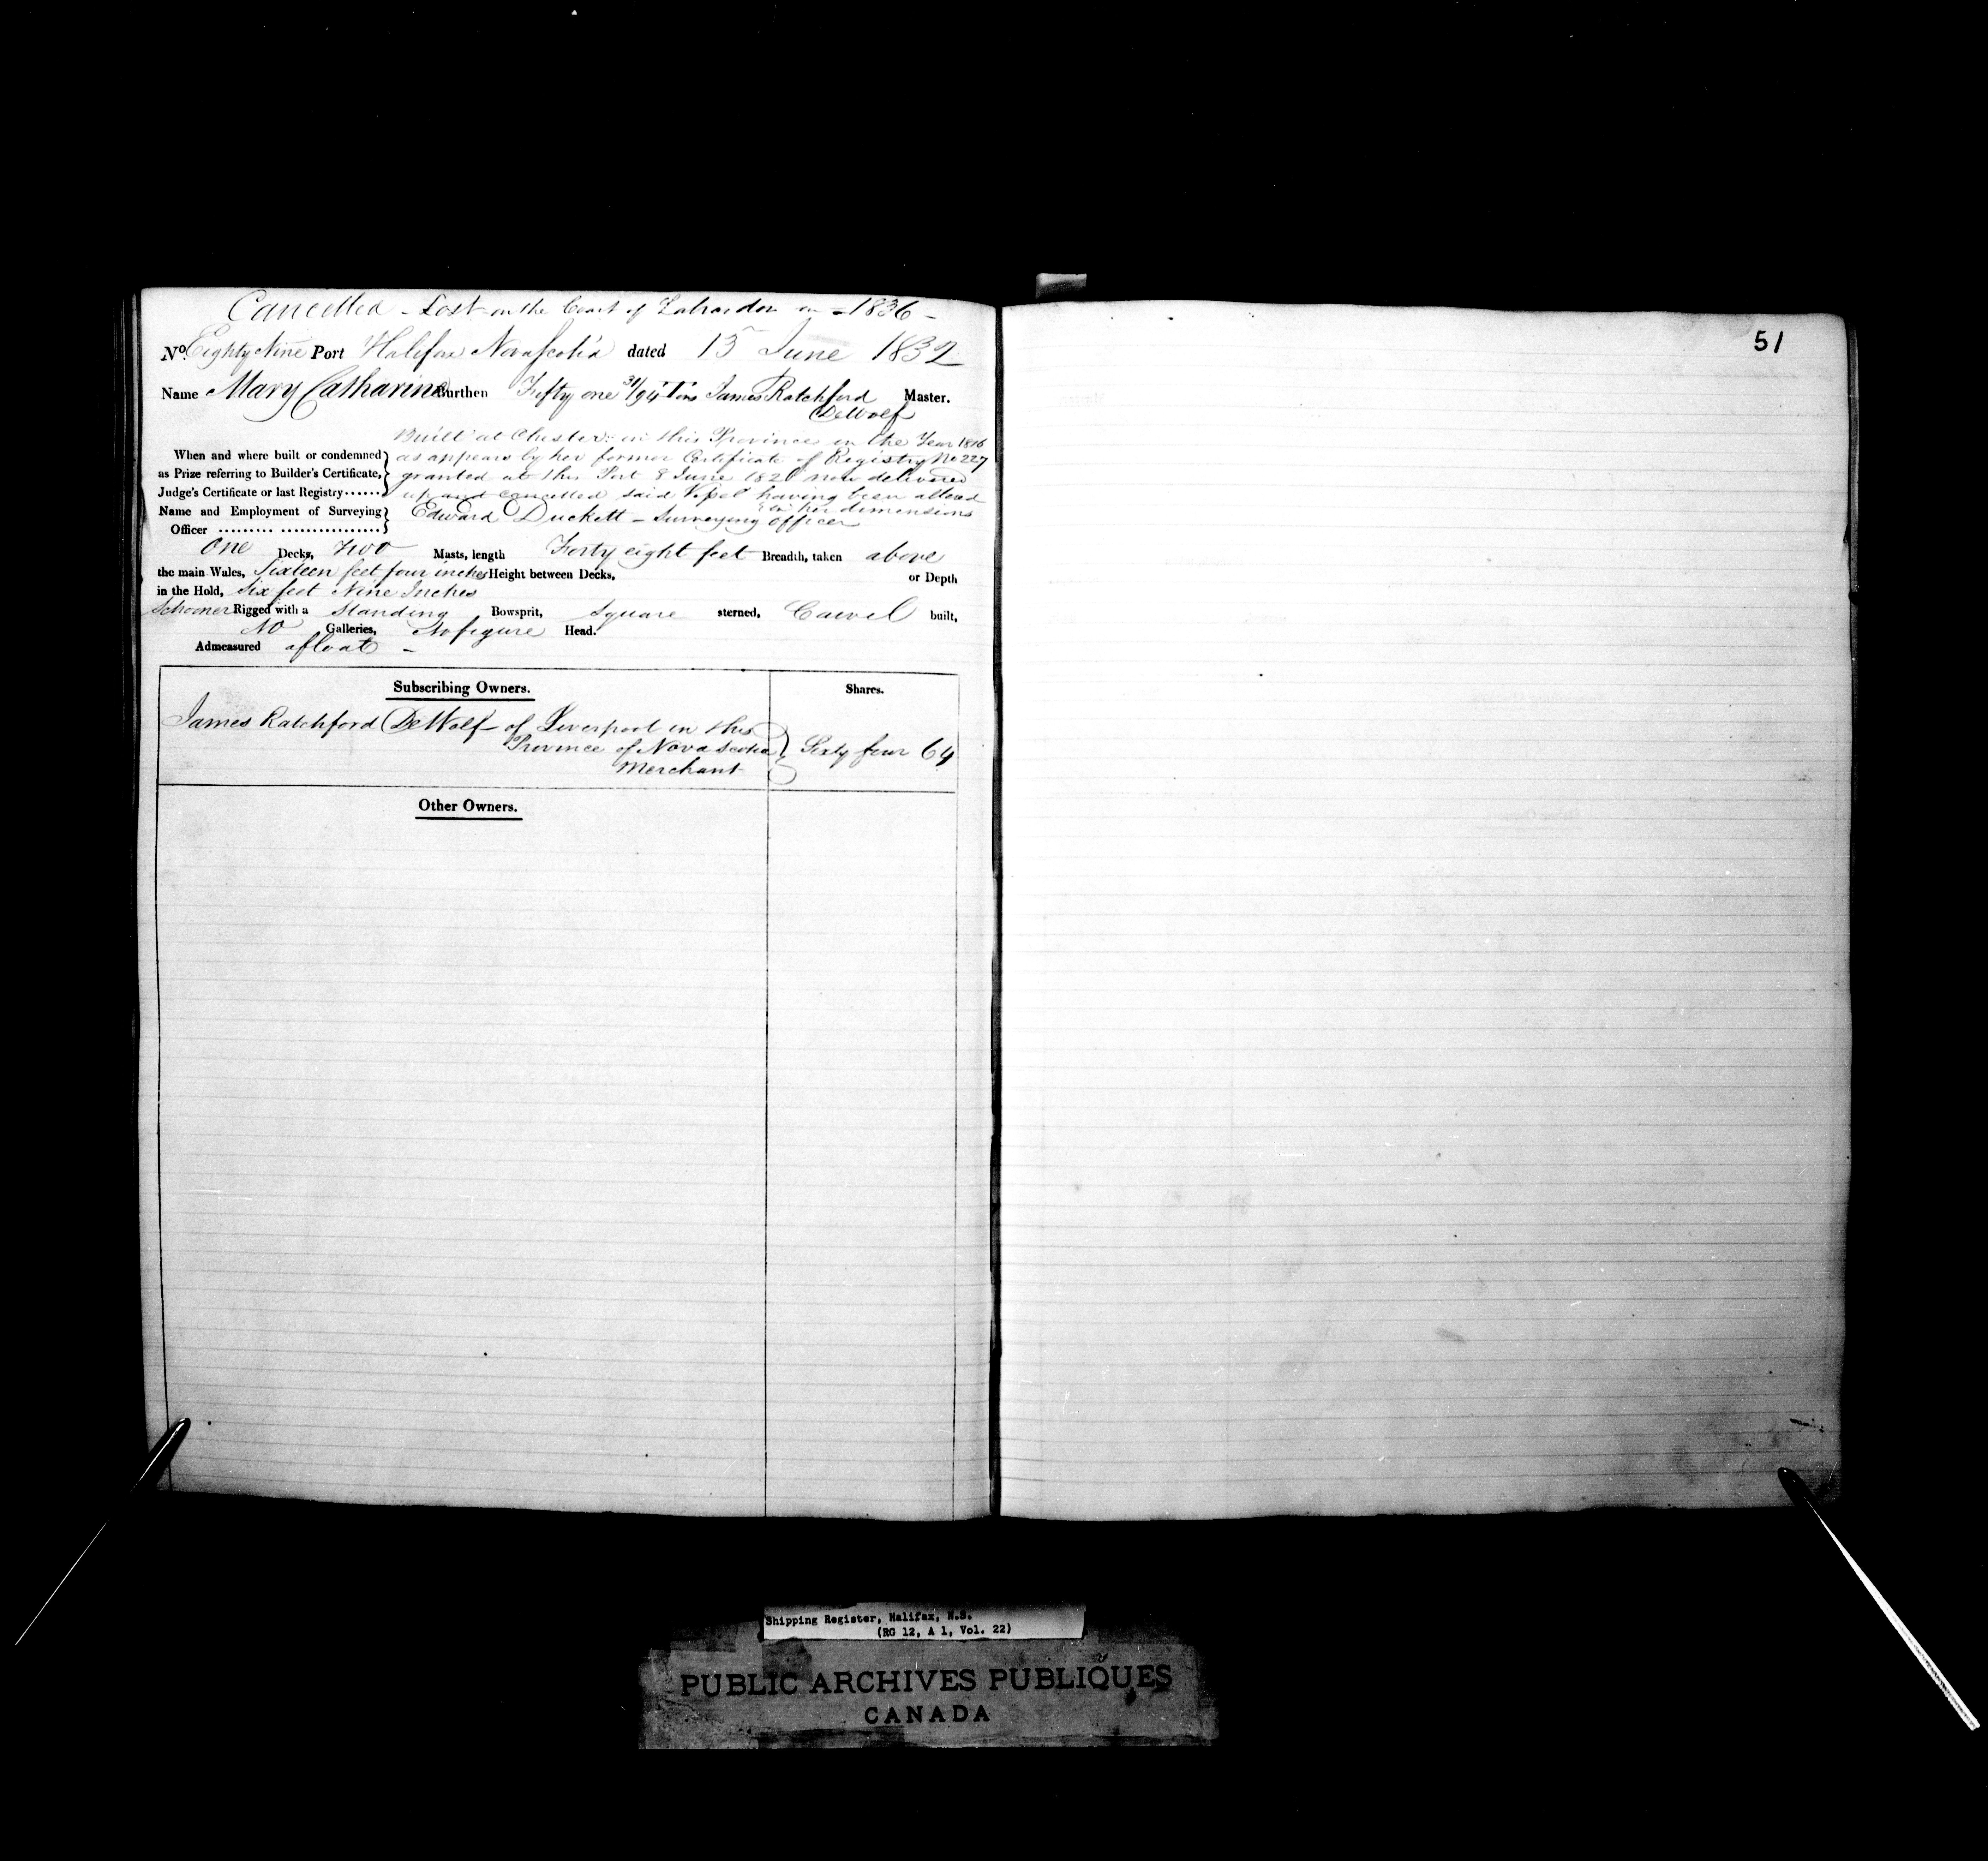 Cancelled - Lost on the Coast of Labrador in - 1836 -
No. Eighty Nine Port Halifax Nova Scotia dated 15 June 1832
Name Mary Catharine Burthen Fifty one 31/94 Tons James Ratchford Master.
DeWolf
Built at Chester in this Province in the Year 1816
When and where built or condemned as appears by her former Certificate of Registry No 227
as Prize referring to Builder's Certificate, granted at this Port 8 June 182 now delivered
Judge's Certificate or last Registry...... up and Cancelled said Vessel having been altered
in her dimensions
Name and Employment of Surveying Edward Duckett - Surveying officer
Officer ......... ................
One Decks, Two Masts, length Forty eight feet Breadth, taken above
the main Wales, Sixteen feet four inches Height between Decks, or Depth
in the Hold, Six feet Nine Inches
Schooner Rigged with a Standing Bowsprit, Square sterned, Carvel built,
No Galleries, No figure Head.
Admeasured afloat -
Subscribing Owners. Shares.
James Ratchford DeWolf - of Liverpool in this
Province of Nova Scotia Sixty four 64
Merchant
Other Owners.
51
Shipping Register, Halifax, N.S.
(RG 12, A 1, Vol. 22)
PUBLIC ARCHIVES PUBLIQUES
CANADA